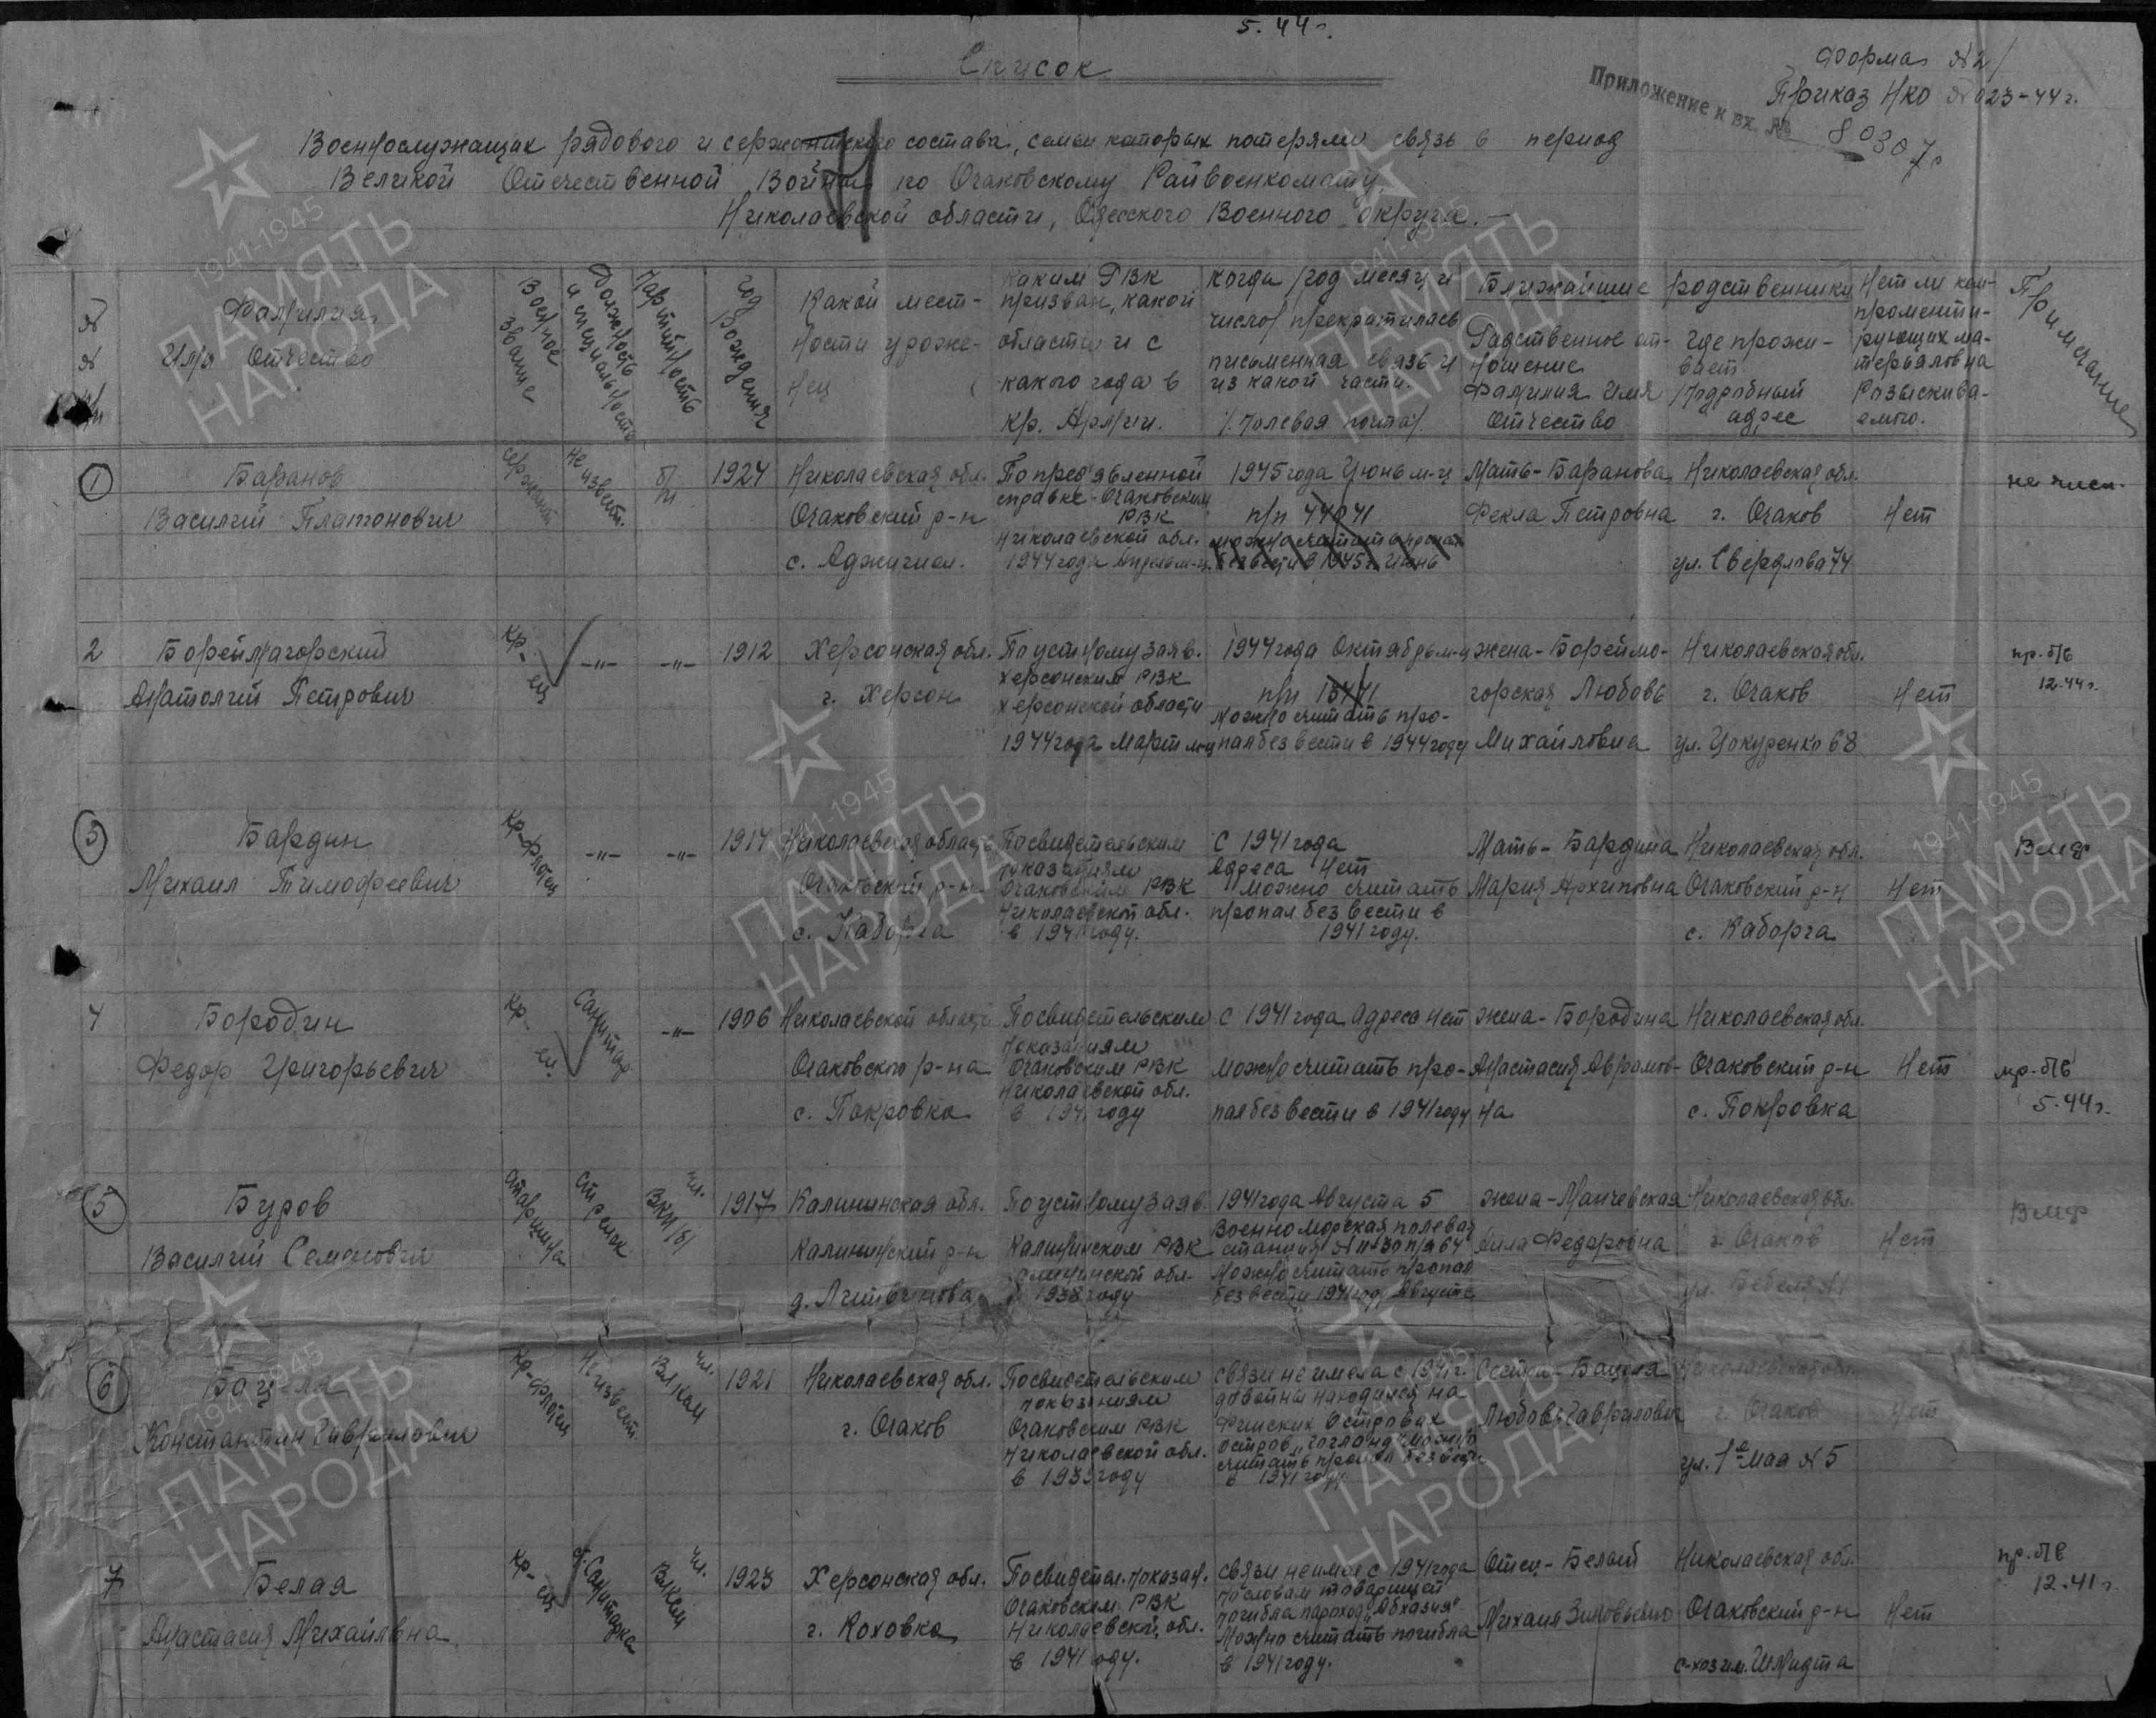 5. 44 г.
Список
Форма №2/
Приказ НКО № 023-44 г.
Приложение к вх. №
80307с
Военнослужащих рядового и сержантского состава, семьи которых потеряли связь в период
Великой Отечественной Войны по Очаковскому Райвоенкомату,
Николаевской области, Одесского Военного округа.-
№
№
Фамилия,
Имя Отчество
Военное
звание
Должность
и специальность
Партийность
Год
рождения
Какой мест-
ности уроже-
нец
Каким РВК
призван, какой
области и с
какого года в
Кр. Армии.
Когда /год месяц и
число/ прекратилась
письменная связь и
из какой части.
/Полевая почта/.
Ближайшие родственники
Родственное от-
ношение
Фамилия Имя
Отчество
Где прожи-
вает
/Подробный
адрес
Нет ли ком-
променти-
рующих ма-
терьялов на
Розыскива-
емого.
Примечание
1
Баранов
Василий Платонович
сержант
Не извест.
б/п
1924
Николаевская обл.
Очаковский р-н
с. Аджигиол.
По пред'явленной
справке - Очаковским
РВК
Николаевской обл.
1944 года Апрель м-ц.
1945 года Июнь м-ц
п/п 44041
можно считать пропал
без вести в 1945 г. Июнь
Мать - Баранова
Фекла Петровна
Николаевская обл.
г. Очаков
ул. Свердлова 44
Нет
не числ.
2
Бореймагорский
Анатолий Петрович
Кр-
ец
-"-
-"-
1912
Херсонская обл.
г. Херсон
По устному заяв.
Херсонским РВК
Херсонской области
1944 года Март м-ц
1944 года Октябрь м-ц
п/п
можно считать про-
пал без вести в 1944 году
жена - Бореймо-
горская Любовь
Михайловна
Николаевская обл.
г. Очаков
ул. Цокуренко 68
Нет
пр. б/в
12.44 г.
3
Бардин
Михаил Тимофеевич
Кр-флотец
-"-
-"-
1914
Николаевская область
Очаковский р-н
с. Каборга
По свидетельским
показаниям
Очаковским РВК
Николаевской обл.
в 1941 году.
С 1941 года
Адреса Нет
можно считать
пропал без вести в
1941 году.
Мать - Бардина
Мария Архиповна
Николаевская обл.
Очаковский р-н
с. Каборга
Нет
Вмф
4
Бородин
Федор Григорьевич
Кр-
ец.
Санитар
-"-
1906
Николаевской области
Очаковского р-на
с. Покровка
По свидетельским
показаниям
Очаковским РВК
Николаевской обл.
в 1941 году
С 1941 года Адреса нет
можно считать про-
пал без вести в 1941 году
жена - Бородина
Анастасия Аврамов-
на
Николаевская обл.
Очаковский р-н
с. Покровка
Нет
пр. б/в
5.44 г.
5
Буров
Василий Семенович
старшина
стрелок
чл.
ВКП/б/
1917
Калининская обл.
Калининский р-н
д. Литвинова
По устному заяв.
Калининским РВК
Калининской обл.
в 1938 году
1941 года Августа 5
Военно морская полевая
станция № 1130 п/я 64
Можно считать пропал
без вести 1941 году Августе
жена - Манчевская
Лила Федоровна
Николаевская обл.
г. Очаков
ул. Бебеля
Нет
Вмф
6
Бацела
Константин Гаврилович
Кр-флотец
Не извест.
чл.
ВЛКСМ
1921
Николаевская обл.
г. Очаков
По свидетельским
показаниям
Очаковским РВК
Николаевской обл.
в 1939 году
связи не имела с 1941 г.
до войны находился на
Финских островах
остров "Гогланд" можно
считать пропал без вести
в 1941 году.
Сестра - Бацела
Любовь Гавриловна
Николаевская обл.
г. Очаков
ул. 1е Мая № 5
Нет
7
Белая
Анастасия Михайлвна
Кр-
ец
Санитарка
чл.
ВЛКСМ
1923
Херсонская обл.
г. Коховка
По свидетел. показан.
Очаковским РВК
Николаевской обл.
в 1941 году.
связи не имел с 1941 года
по словам товарищей
погибла пароход "Абхазия"
Можно считать погибла
в 1941 году.
Отец - Белый
Михаил Зиновьевич
Николаевская обл.
Очаковский р-н
с-хоз им. Шмидта
Нет
пр. б/в
12.41 г.
1941-1945
ПАМЯТЬ
НАРОДА